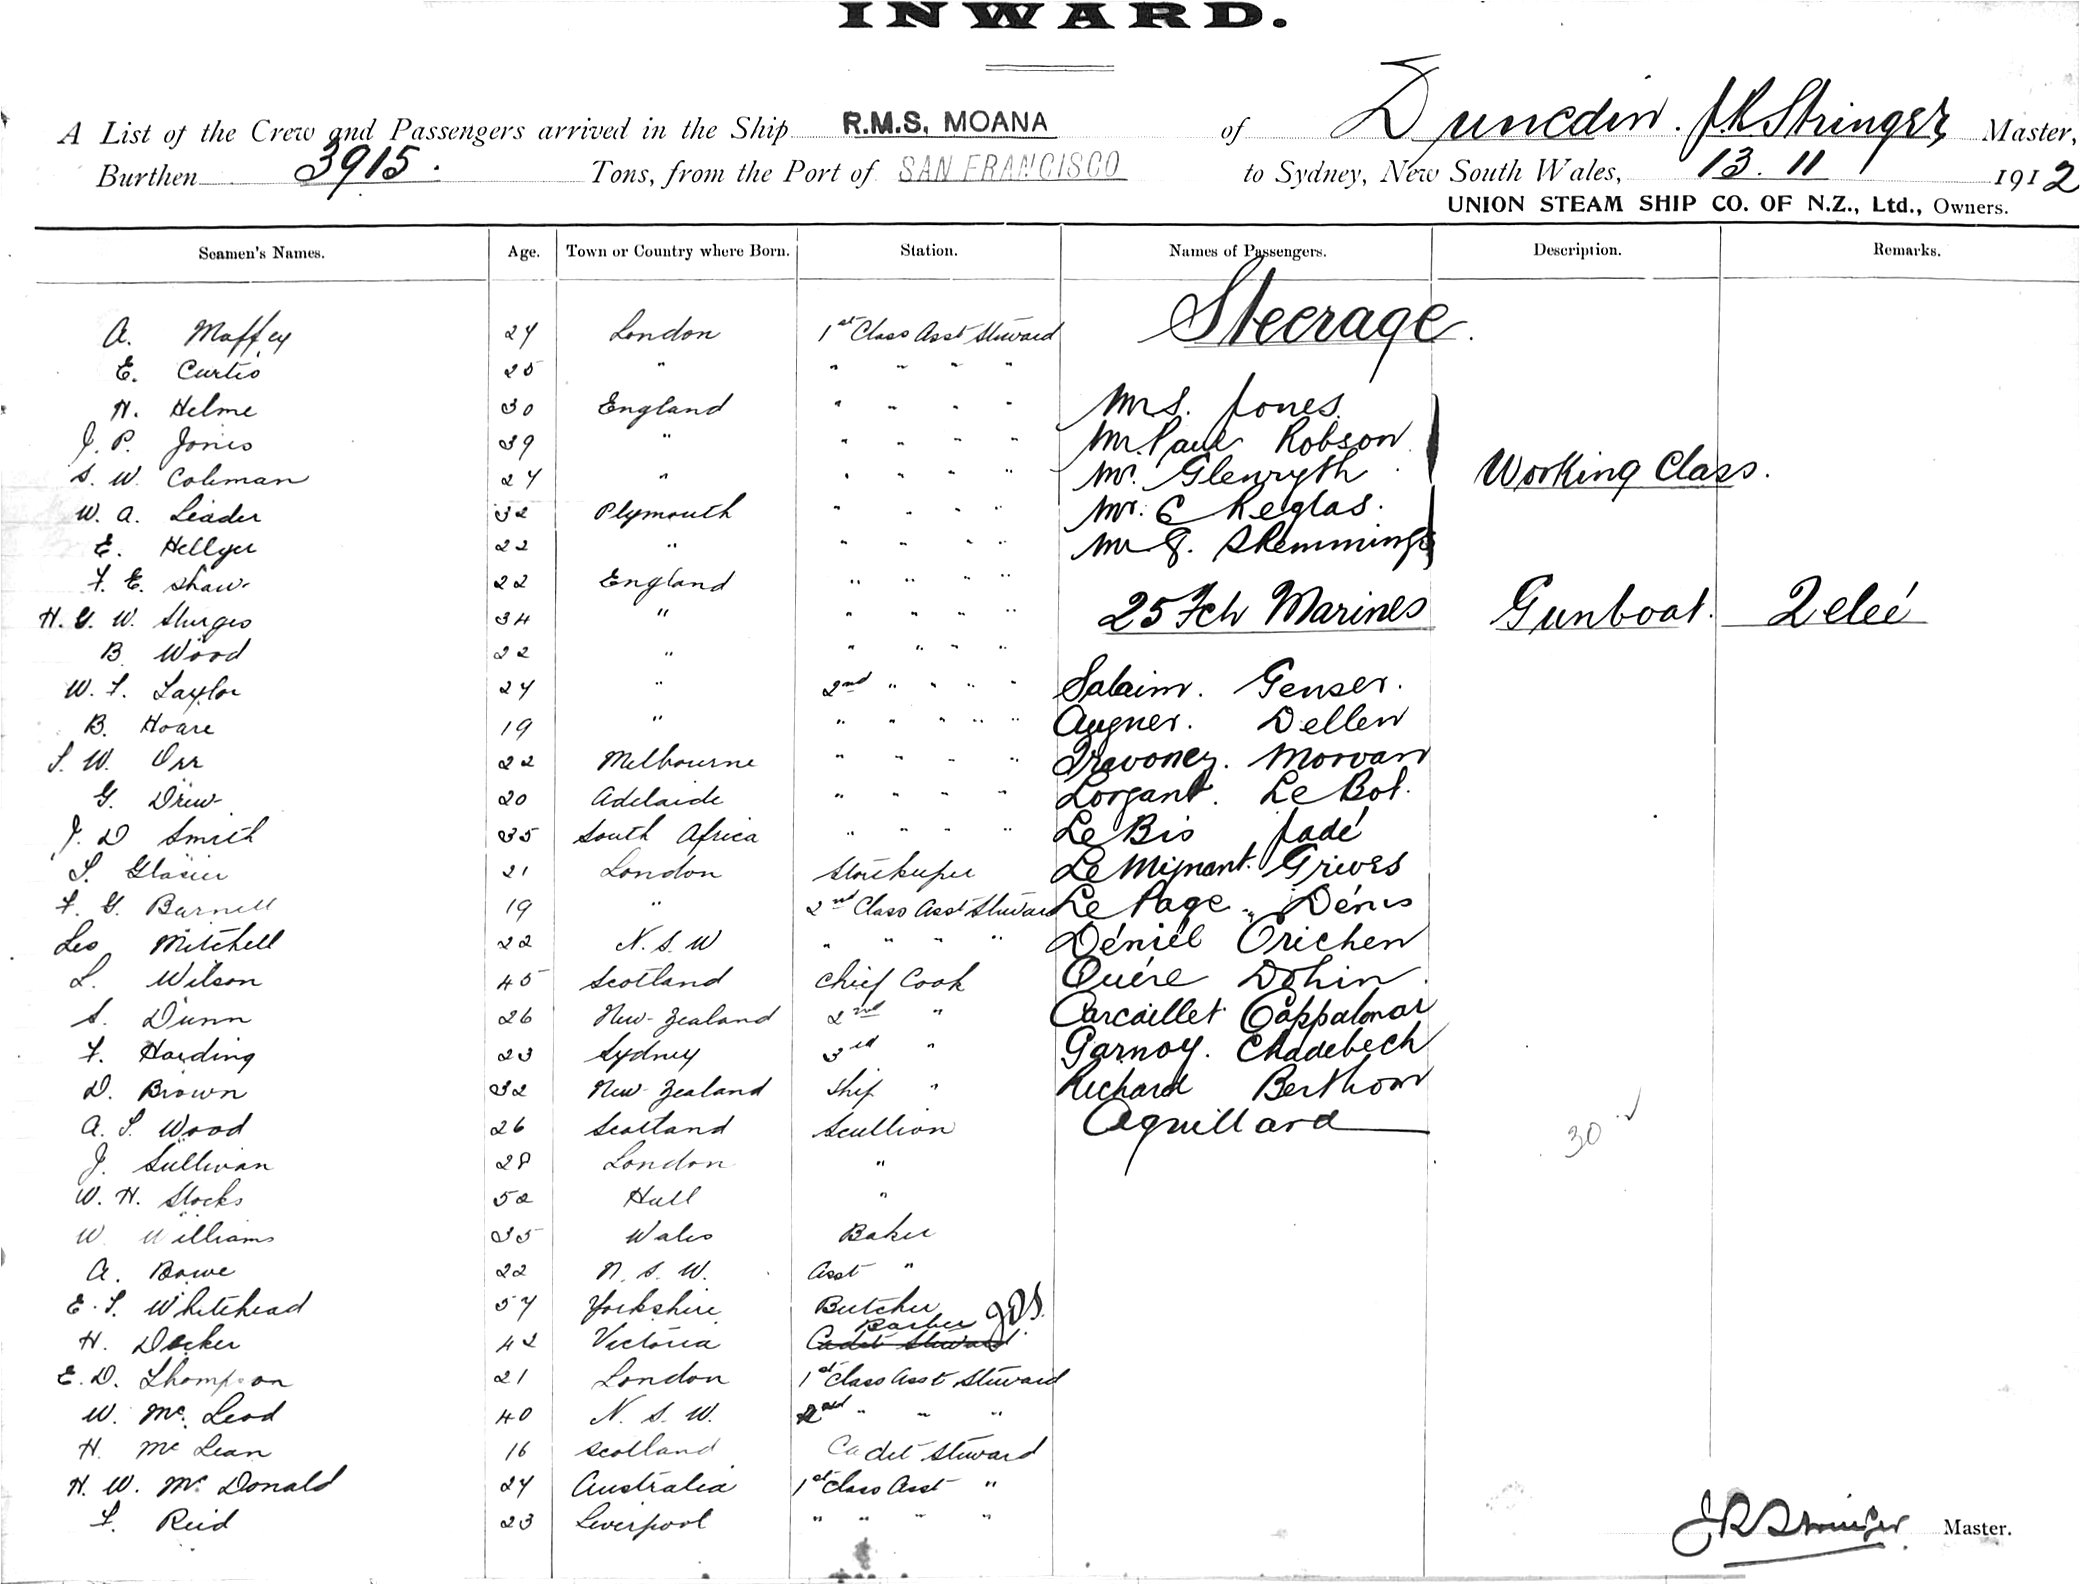 INWARD.
A List of the Crew and Passengers arrived in the Ship R.M.S. MOANA of Dunedin. J R Stringer, Master,
Burthen 3915. Tons, from the Port of SAN FRANCISCO to Sydney, New South Wales, 13. 11 1912
UNION STEAM SHIP CO. OF N.Z., Ltd., Owners.
Seamen's Names. Age. Town or Country where Born. Station. Names of Passengers. Description. Remarks.
Steerage.
A. Maffey 24 London 1st Class Asst Steward
E. Curtis 25 " " " " "
H. Helme 30 England " " " " Mrs. Jones.
J. P. Jones 39 " " " " " Mr. Paul Robson
S. W. Coleman 24 " " " " " Mr. Glenryth Working Class.
W. A. Leader 32 Plymouth " " " " Mr. E Reglas.
E. Hellyer 22 " " " " " Mr G. Skemmings
F. E. Shaw 22 England " " " "
H. G. W. Sturges 34 " " " " " 25 Fch Marines Gunboat. Zeleé
B. Wood 22 " " " " "
W. T. Taylor 24 " 2nd " " " " Salaim. Genser.
B. Hoare 19 " " " " " " Augner. Dellen
T. W. Orr 22 Melbourne " " " " Morvan
G. Drew 20 Adelaide " " " " Lorgant. Le Bot.
J. D Smith 35 South Africa " " " " Le Bis Jadé
S. Glasier 21 London Storekeeper Le Mignant. Grives
F. G. Barnell 19 " 2nd Class Asst Steward Le Page. Dénis
Leo Mitchell 22 N. S. W " " " " Déniél Crichen
L. Wilson 45 Scotland Chief Cook Quére Dohin.
S. Dunn 26 New Zealand 2nd " Carcaillet Cappalmar
F. Harding 23 Sydney 3rd " Garnoy. Chadebech
D. Brown 32 New Zealand Ship " Richard Berthom
A. S. Wood 26 Scotland Scullion Aguillard
30
J. Sullivan 28 London "
W. H. Stocks 52 Hull "
W Williams 35 Wales Baker
A. Bowe 22 N. S. W. Asst "
E. T. Whitehead 57 Yorkshire Butcher
Barber
H. Decker 42 Victoria Cadet Steward
E. D. Thompson 21 London 1st Class Asst Steward
W. Mc. Leod 40 N. S. W. 2nd " " "
H. Mc Lean 16 Scotland Cadet Steward
H. W. Mc Donald 24 Australia 1st Class Asst "
F. Reid 23 Liverpool " " " "
J R Stringer Master.